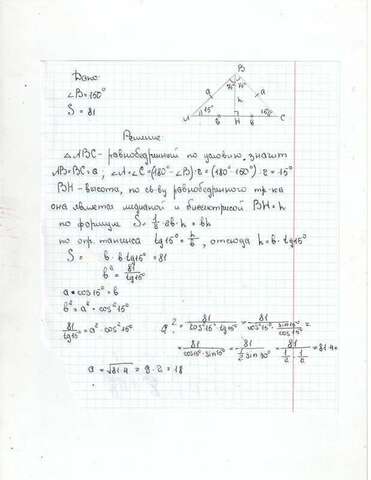 Дано:
∠B=150°
S = 81
B
75° 75°
a
a
h
15°
15°
A
b
H
b
C
Решение
△ABC - равнобедренный по условию, значит
AB=BC=a; ∠A=∠C=(180°-∠B):2=(180°-150°):2=15°
BH - высота, по св-ву равнобедренного тр-ка
она является медианой и биссектрисой BH=h
по формуле S=1/2·2b·h = bh
по опр. тангенса tg15°=h/b, отсюда h=b·tg15°
S = b·b·tg15°=81
b²=81/tg15°
a·cos15°=b
b²=a²·cos²15°
81/tg15°=a²·cos²15°
a²=81/(cos²15°·tg15°)=81/(cos²15°·sin15°/cos15°)=
=81/(cos15°·sin15°)=81/(1/2 sin30°)=81/(1/2·1/2)=81·4
a=√81·4=9·2=18